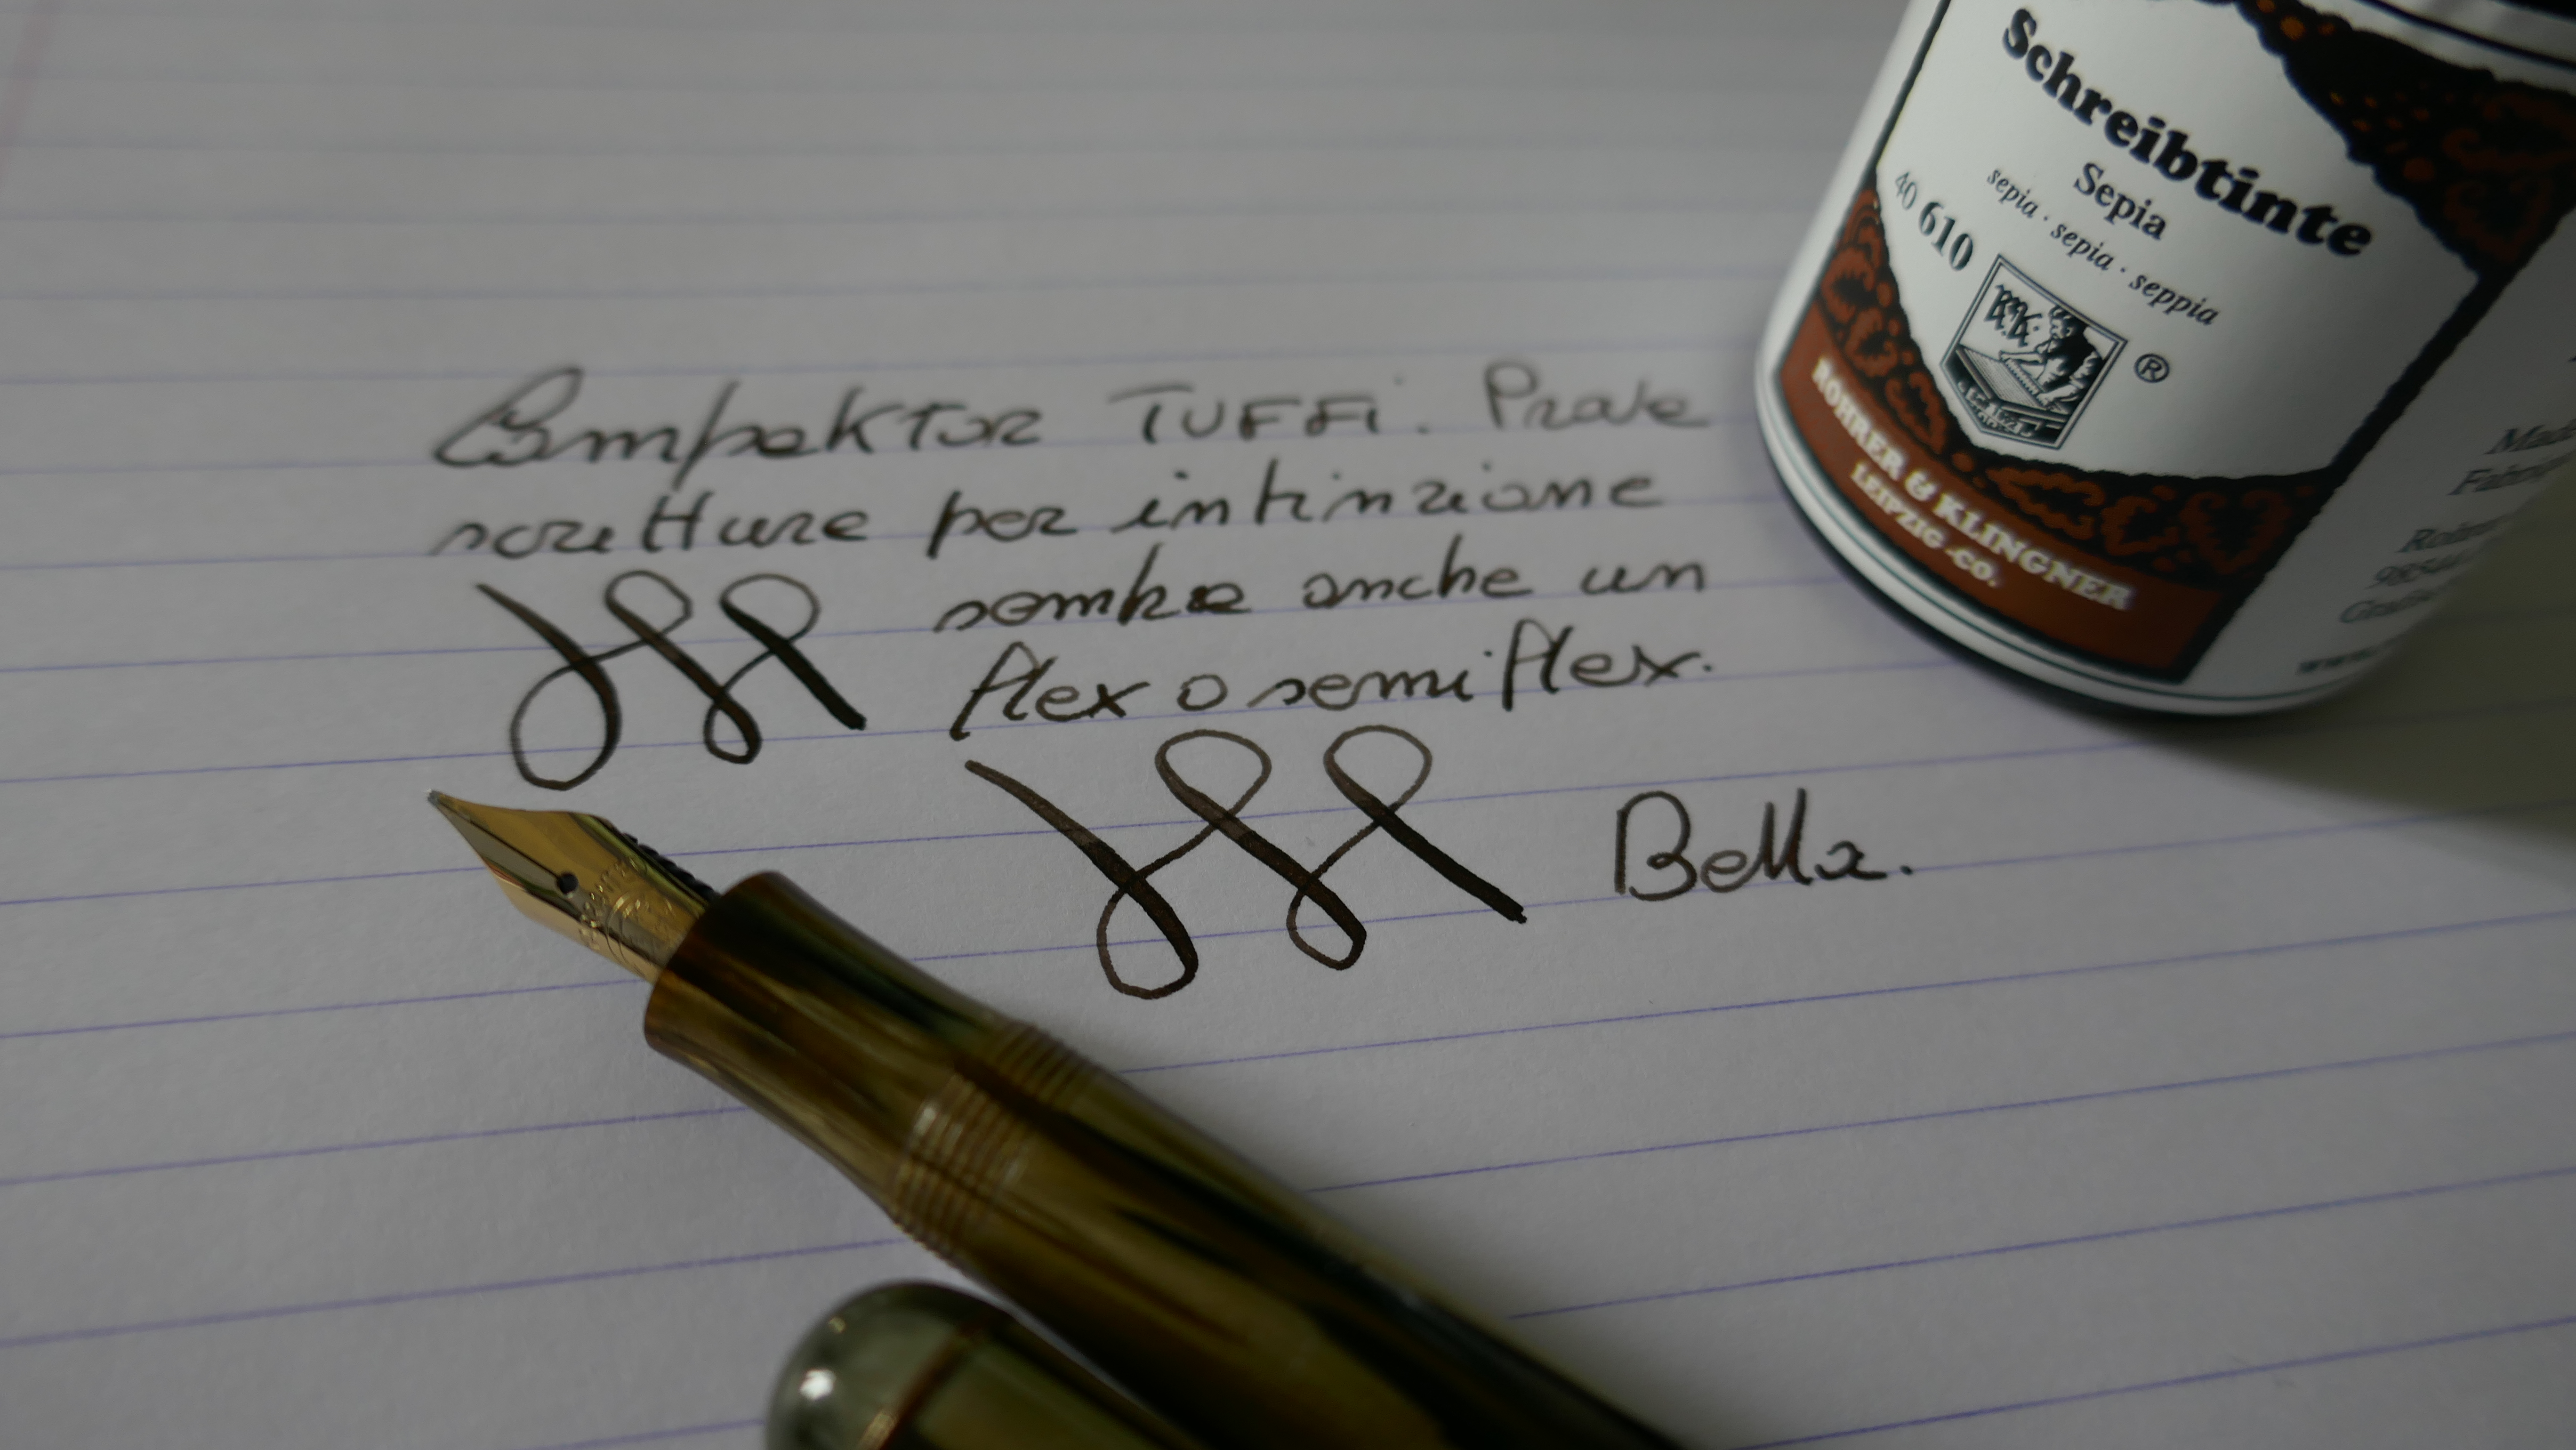 Compaktor TUFFi. Prove
scritture per intinzione
sembra anche un
flex o semiflex.
Bella.
Schreibtinte
Sepia
sepia · sepia · seppia
40 610
®
ROHRER & KLINGNER
LEIPZIG -CO.